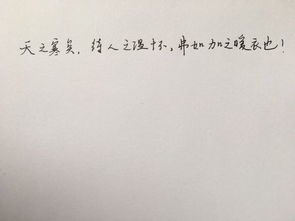 天之寒矣，待人之温怀，弗如加之暖衣也！